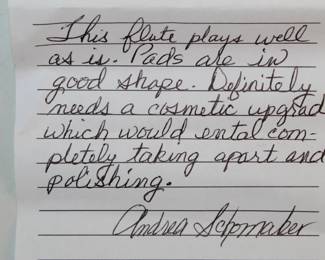 This flute plays well
as is. Pads are in
good shape. Definitely
needs a cosmetic upgrad
which would ental com-
pletely taking apart and
polishing.
Andrea Schomaker